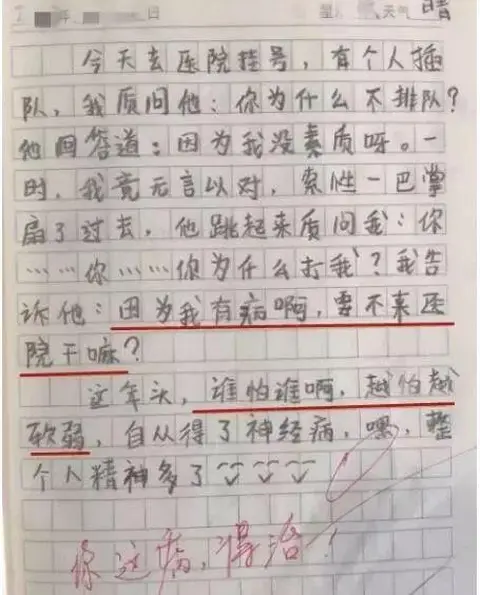 日 天气 晴
今天去医院挂号，有个人插
队，我质问他：你为什么不排队？
他回答道：因为我没素质呀。一
时，我竟无言以对，索性一巴掌
扇了过去，他跳起来质问我：你
……你……你为什么打我？我告
诉他：因为我有病啊，要不来医
院干嘛？
这年头，谁怕谁啊，越怕越
软弱，自从得了神经病，嘿，整
个人精神多了
你这病，得治！